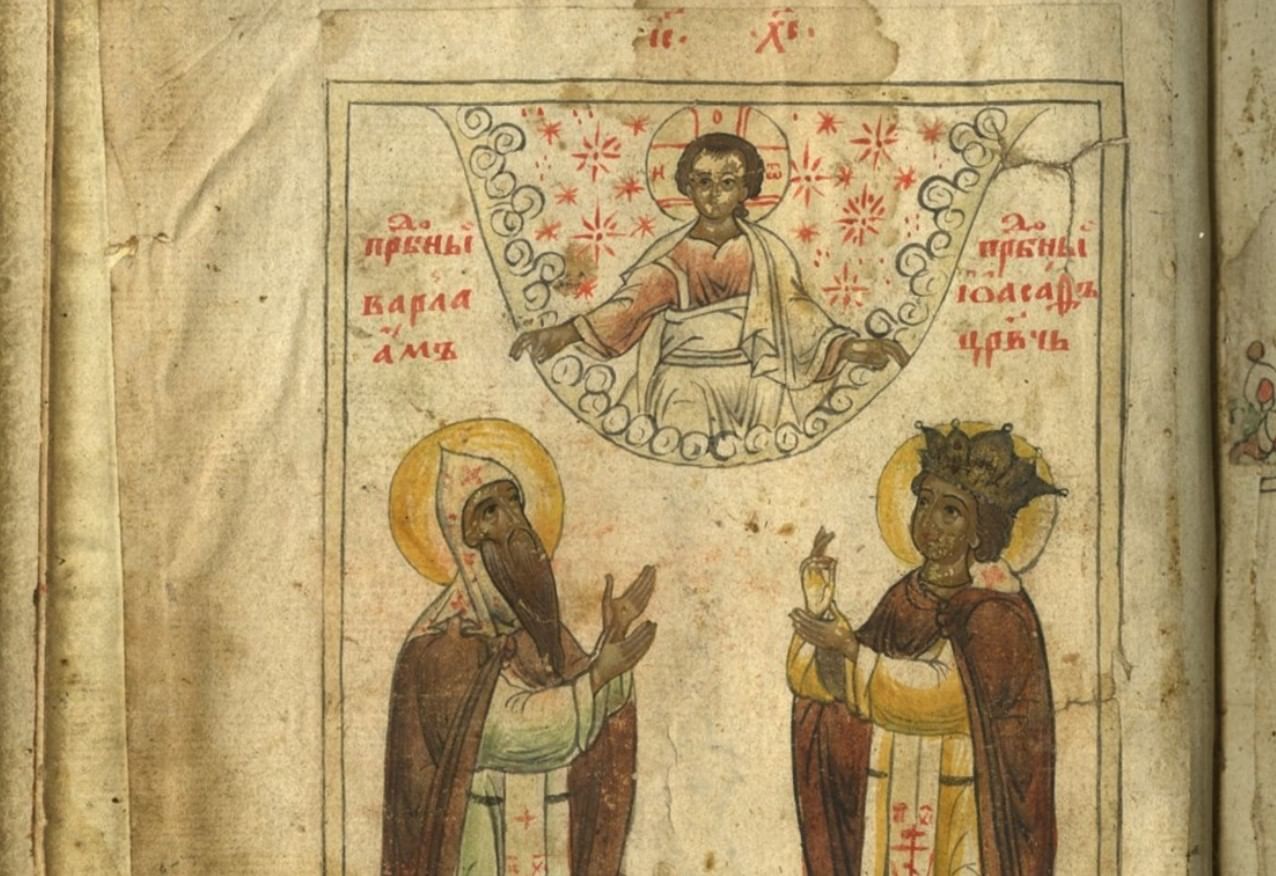 І҃С. Х҃С.
О
Н Ѡ
прпⷣбны
варла
амъ
прпⷣбны
іѡасаѳъ
црв҃чь